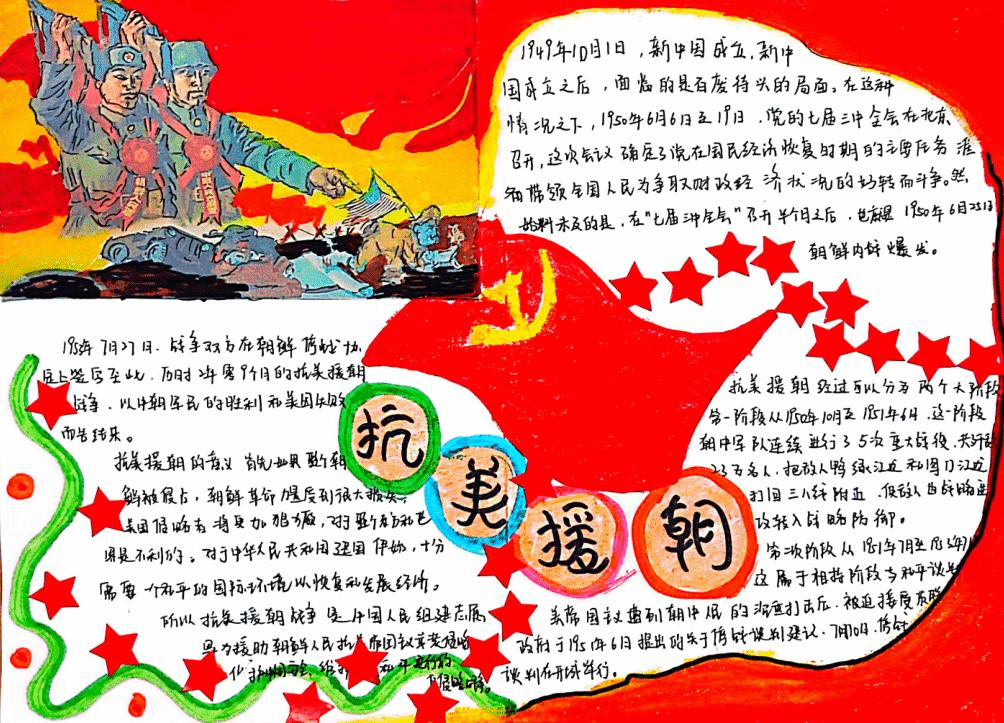 1949年10月1日,新中国成立,新中
国成立之后,面临的是百废待兴的局面。在这种
情况之下,1950年6月6日至19日,党的七届三中全会在北京
召开,这次会议确定了党在国民经济恢复时期的主要任务
带领全国人民为争取财政经济状况的好转而斗争。然
始料未及的是,在"七届三中全会"召开半个月之后,1950年6月25日
朝鲜内战爆发。
7月27日,战争双方在朝鲜停战协
定上签字至此,历时2年零9个月的抗美援朝
战争,以中朝军民的胜利和美国失败
而告结束。
抗美援朝的意义首先如果整个朝
鲜被侵占,朝鲜革命力量受到很大损失,
美国侵略者将更加猖獗,对于整个东方和
是不利的。对于中华人民共和国建国伊始,十分
需要一个和平的国际环境以恢复和发展经济。
所以抗美援朝战争是中国人民组建志愿
为援助朝鲜人民抗美帝国主义
抗
美
援
朝
抗美援朝经过可以分为两个大阶段
第一阶段从1950年10月至1951年6月,这一阶段
朝中军队连续进行了5次重大战役,共歼敌
23万多人,把敌人鸭绿江边和图们江边
打回三八线附近,使敌人由战略进
攻转入战略防御。
第二次阶段从1951年7月至1953年7月
这属于相持阶段与和平谈判
美帝国主义遭到朝中人民的沉重打击后,被迫接
政府于1951年6月提出的关于停战谈判建议,7月10日,停战
谈判在开城举行。